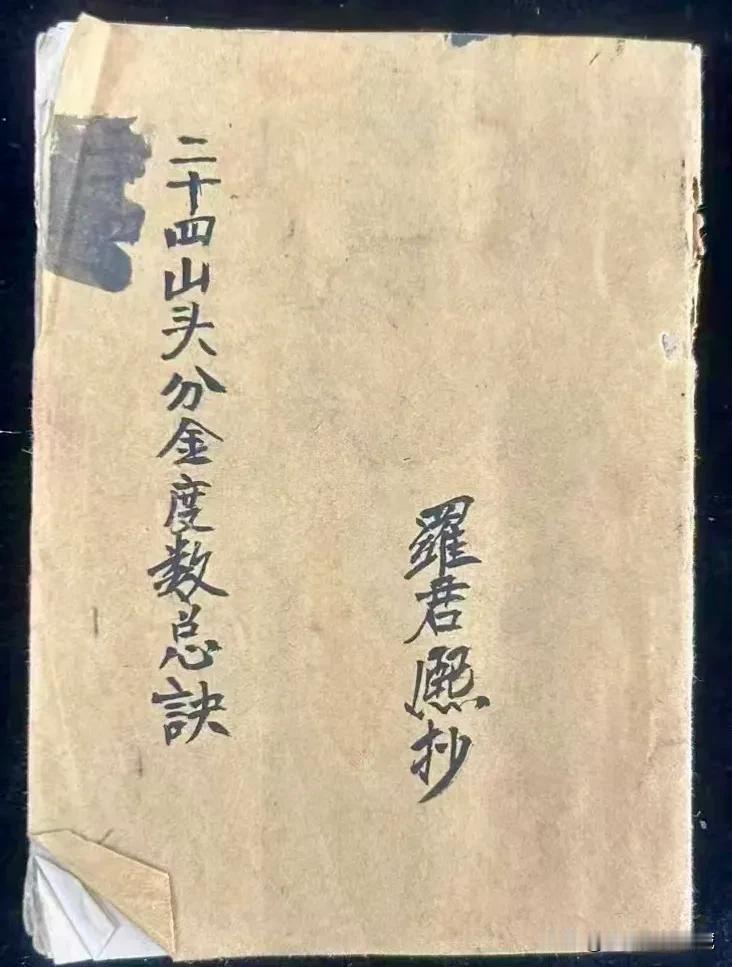 二十四山头分金度数总訣
羅君熙抄